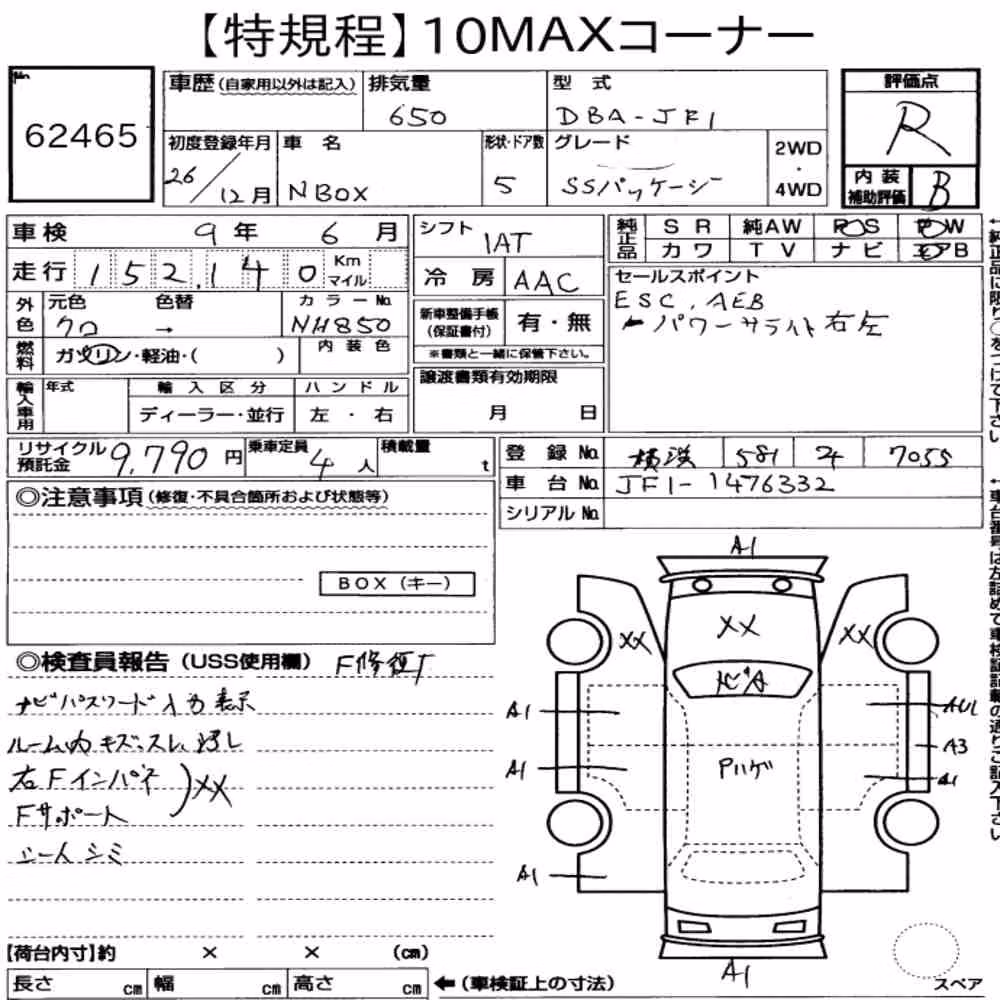 【特規程】10MAXコーナー
№ 62465
車歴(自家用以外は記入) 排気量 650 型式 DBA-JF1
評価点 R
初度登録年月 26/12月 車名 NBOX 形状・ドア数 5 グレード SSパッケージ 2WD・4WD
内装補助評価 B
車検 9年 6月
走行 152,140 Km マイル
シフト IAT
冷房 AAC
純正品 SR 純AW PS PW
カワ TV ナビ エアB
セールスポイント
ESC, AEB
パワースライド右左
外色 元色 クロ 色替 → カラーNo. NH850
燃料 ガソリン・軽油・( ) 内装色
新車整備手帳(保証書付) 有・無
※書類と一緒に保管下さい。
譲渡書類有効期限
月 日
輸入車用 年式 輸入区分 ハンドル
ディーラー・並行 左・右
リサイクル預託金 9,790円 乗車定員 4人 積載量 t
登録No. 横浜 581 7055
車台No. JF1-1476332
シリアルNo.
◎注意事項(修復・不具合箇所および状態等)
BOX(キー)
◎検査員報告(USS使用欄) F修復有
ナビパスワード入力表示
ルーム内キズ、スレ、汚レ
右Fインパネ
Fサポート
XX
シートシミ
A1
XX XX XX
A1 AU1
A3
A1 Pハゲ A1
A1
A1
【荷台内寸】約 × × (cm)
長さ cm 幅 cm 高さ cm ←(車検証上の寸法)
スペア
←純正品に限り○をつけて下さい。
←車台番号は左詰めで車検証記載の通りご記入下さい。